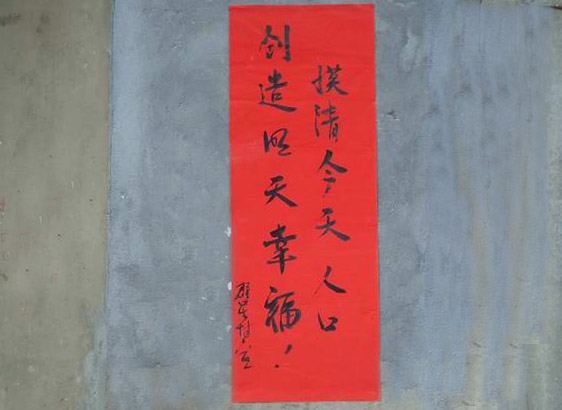 摸清今天人口
创造明天幸福！